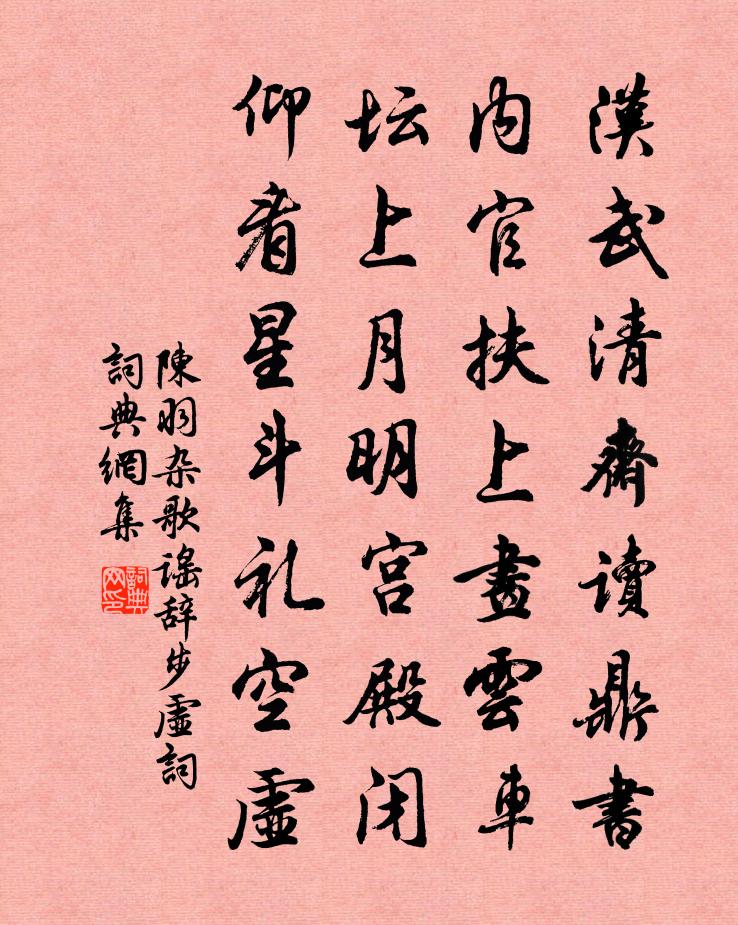 漢武清齋讀鼎書
内官扶上畫雲車
坛上月明宫殿闭
仰看星斗礼空虛
陳羽杂歌谣辞步虛詞
詞典網集
詞典网印